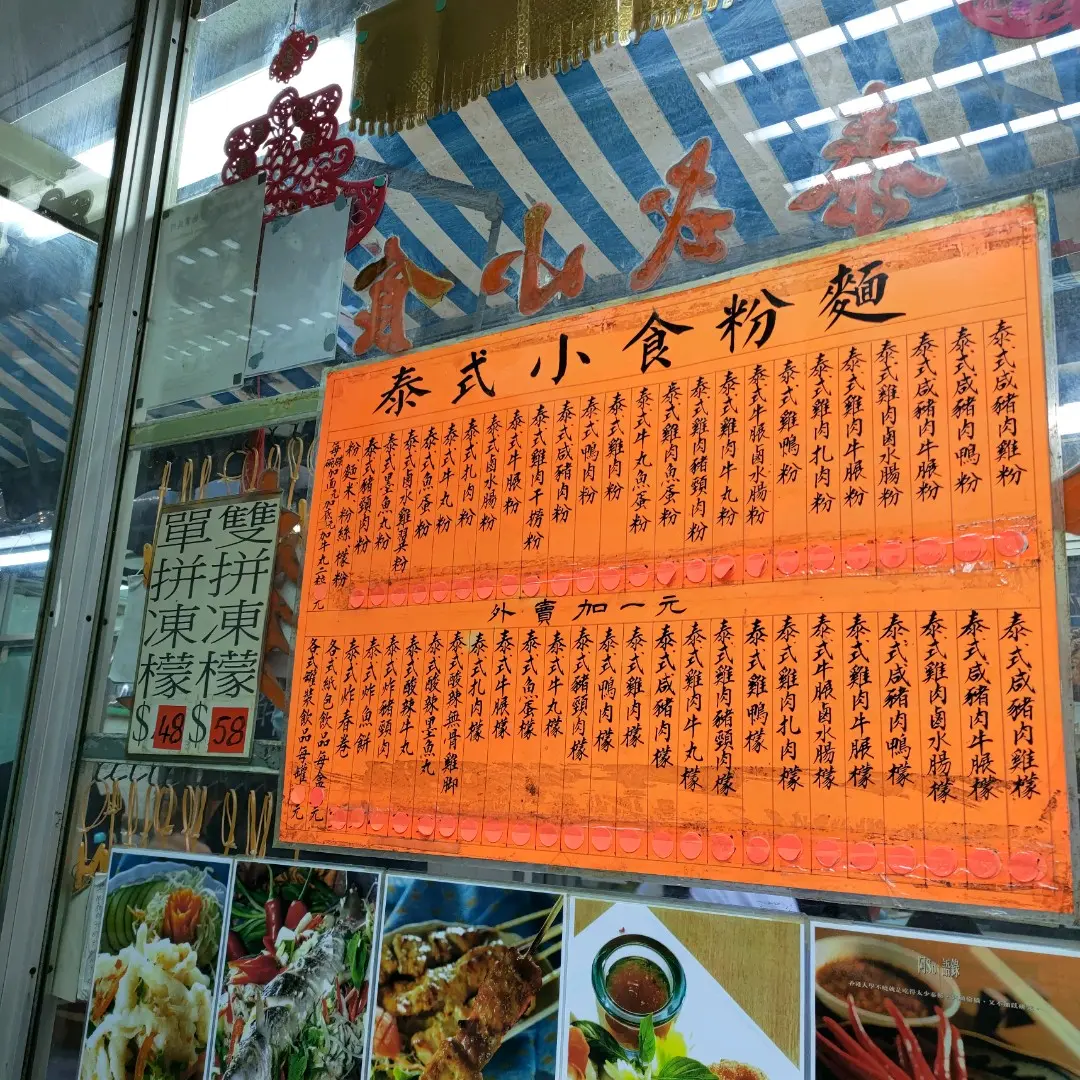 泰式小食粉麵
泰式咸豬肉雞粉
泰式咸豬肉鴨粉
泰式咸豬肉牛𦟌粉
泰式雞肉鹵水腸粉
泰式雞肉牛𦟌粉
泰式雞肉扎肉粉
泰式雞鴨粉
泰式牛𦟌鹵水腸粉
泰式雞肉牛丸粉
泰式雞肉豬頸肉粉
泰式雞肉魚蛋粉
泰式牛丸魚蛋粉
泰式雞肉粉
泰式鴨肉粉
泰式咸豬肉粉
泰式雞肉干撈粉
泰式牛𦟌粉
泰式鹵水腸粉
泰式扎肉粉
泰式牛丸粉
泰式魚蛋粉
泰式鹵水雞翼粉
泰式墨魚丸粉
泰式豬頸肉粉
粉麵米粉絲檬粉
外賣加一元
泰式咸豬肉雞檬
泰式咸豬肉牛𦟌檬
泰式雞肉鹵水腸檬
泰式咸豬肉鴨檬
泰式雞肉牛𦟌檬
泰式牛𦟌鹵水腸檬
泰式雞肉扎肉檬
泰式雞鴨檬
泰式雞肉豬頸肉檬
泰式雞肉牛丸檬
泰式咸豬肉檬
泰式雞肉檬
泰式鴨肉檬
泰式豬頸肉檬
泰式牛丸檬
泰式魚蛋檬
泰式牛𦟌檬
泰式扎肉檬
泰式酸辣無骨雞腳
泰式酸辣墨魚丸
泰式酸辣牛丸
泰式炸豬頸肉
泰式炸魚餅
泰式炸春卷
各式紙包飲品每盒元
各式罐裝飲品每罐元
雙拼凍檬
$58
單拼凍檬
$48